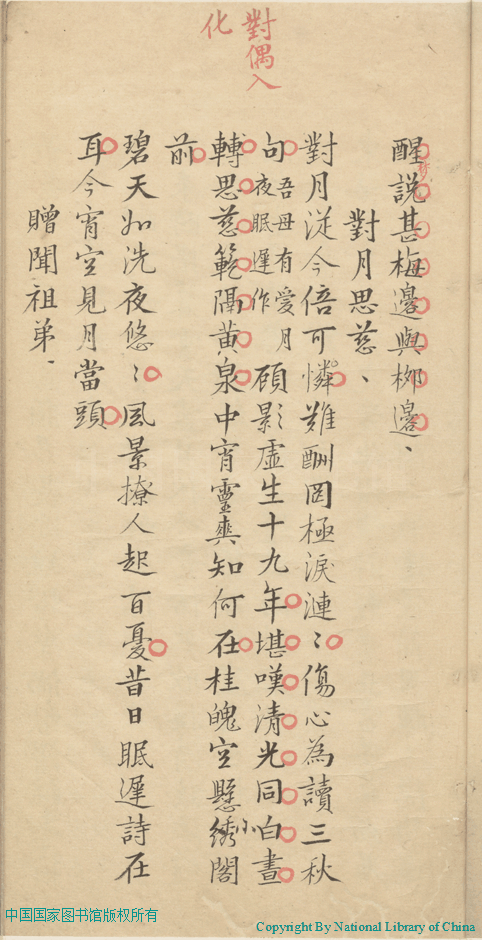 對偶入
化
醒說甚梅邊與柳邊、
對月思慈、
對月從今倍可憐難酬罔極淚漣〻傷心為讀三秋
句吾母有愛月夜眠遲作頋影虛生十九年堪嘆清光同白晝
轉思慈範隔黃泉中宵靈爽知何在桂魄空懸綉小閣
前
碧天如洗夜悠〻風景撩人起百憂昔日眠遲詩在
耳今宵空見月當頭
贈聞祖弟、
中国国家图书馆版权所有
Copyright By National Library of China